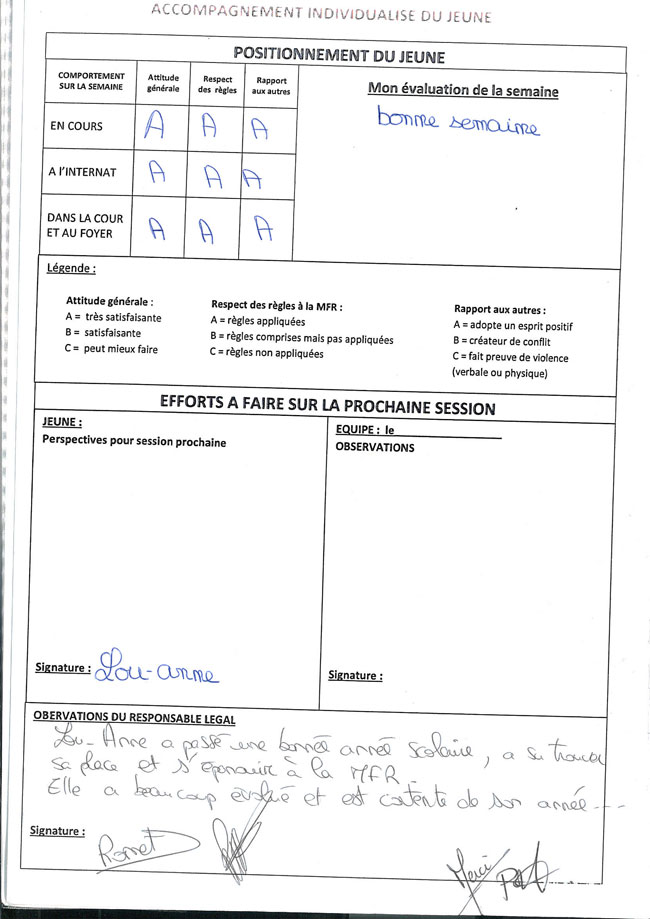 ACCOMPAGNEMENT INDIVIDUALISE DU JEUNE
POSITIONNEMENT DU JEUNE
COMPORTEMENT SUR LA SEMAINE Attitude générale Respect des règles Rapport aux autres
EN COURS A A A
A l'INTERNAT A A A
DANS LA COUR ET AU FOYER A A A
Mon évaluation de la semaine
bonne semaine
Légende :
Attitude générale :
A = très satisfaisante
B = satisfaisante
C = peut mieux faire
Respect des règles à la MFR :
A = règles appliquées
B = règles comprises mais pas appliquées
C = règles non appliquées
Rapport aux autres :
A = adopte un esprit positif
B = créateur de conflit
C = fait preuve de violence
(verbale ou physique)
EFFORTS A FAIRE SUR LA PROCHAINE SESSION
JEUNE :
Perspectives pour session prochaine
Signature : Lou-anne
EQUIPE : le
OBSERVATIONS
Signature :
OBERVATIONS DU RESPONSABLE LEGAL
Lou-Anne a passé une bonne année scolaire, a su trouver
sa place et s'épanouir à la MFR.
Elle a beaucoup évolué et est contente de son année---
Signature :
Merci